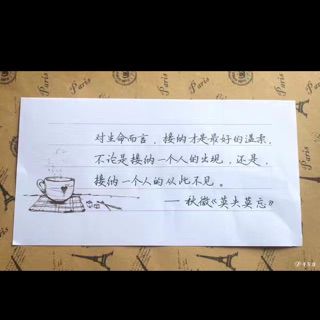 对生命而言，接纳才是最好的温柔，
不论是接纳一个人的出现，还是，
接纳一个人的从此不见。
— 秋微《莫失莫忘》
Paris
Paris
Paris